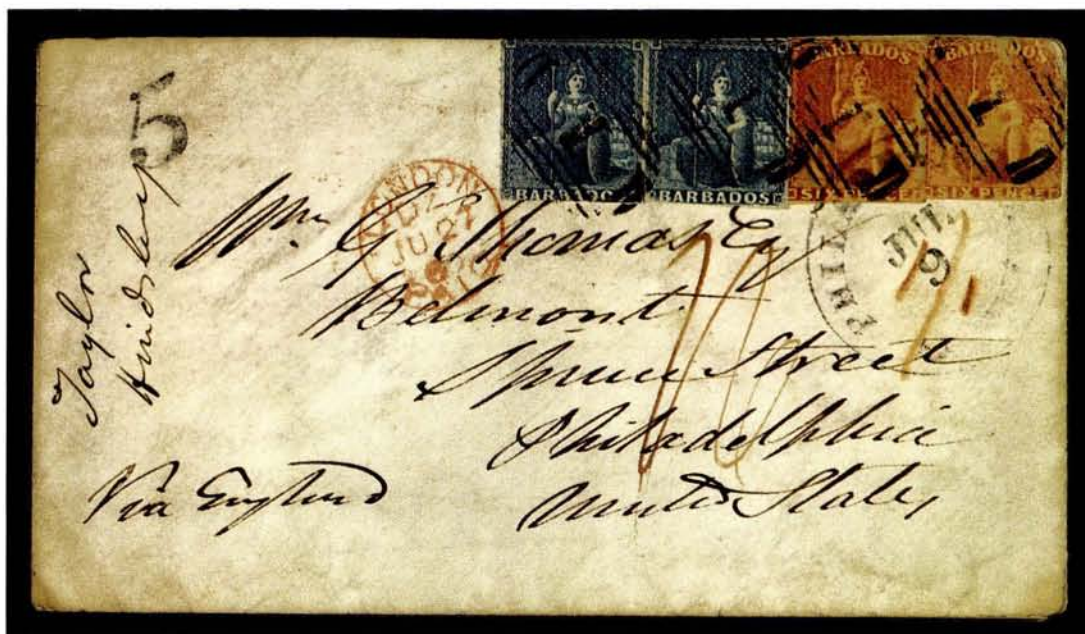 BARBADOS BARBADOS
BARBADOS BARBADOS
SIX PENCE SIX PENCE
5
Taylor
LONDON
JU 27
PAID
PHIL
JUL
9
1/.
Wm G Thomas Esq
Belmont
Spruce Street
Philadelphia
United States
Via England